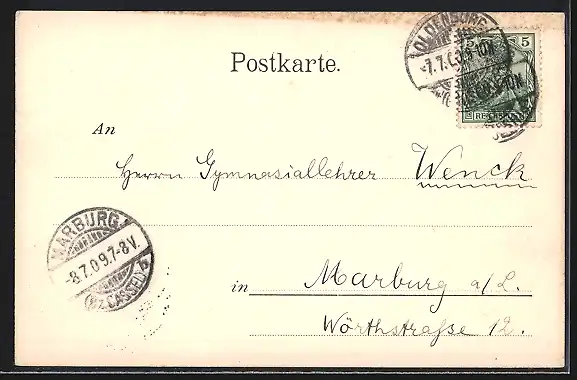 OLDENBURG
-7.7.0
5
REICHSPOST
Postkarte.
An
Herrn Gymnasiallehrer Wenck
MARBURG
-8.7.09.7-8V.
(Bz.CASSEL) b
in Marburg a/L.
Wörthstraße 12.